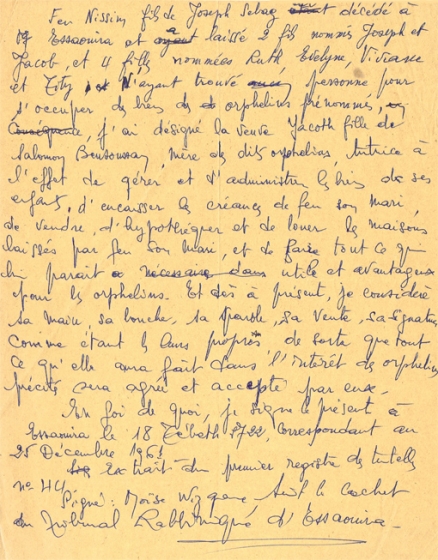 Feu Nissim fils de Joseph Sebag était décédé à
Essaouira et a ayant laissé 2 fils nommés Joseph et
Jacob, et 4 filles nommées Ruth, Evelyne, Viviane
et Zity. N'ayant trouvé personne pour
s'occuper des biens des orphelins prénommés,
Conséquence, j'ai désigné la veuve Jacoth fille de
Salomon Bensoussan, mère des dits orphelins, tutrice à
l'effet de gérer et d'administrer les biens de ses
enfants, d'encaisser les créances de feu son mari,
de vendre, d'hypothéquer et de louer les maisons
laissés par feu son mari, et de faire tout ce qui
lui paraît nécessaire dans utile et avantageux
pour les orphelins. Et dès à présent, je considère
sa main, sa bouche, sa parole, sa vente, sa signature
comme étant les leurs propres de sorte que tout
ce qu'elle aura fait dans l'intérêt des orphelins
précités sera agréé et accepté par eux.
En foi de quoi, je signe le présent à
Essaouira le 18 Tébeth 5722, correspondant au
25 Décembre 1961
Extrait du premier registre des tutelles
n° 44
Signé : Moïse Wizgane Suit le cachet
du Tribunal Rabbinique d'Essaouira.